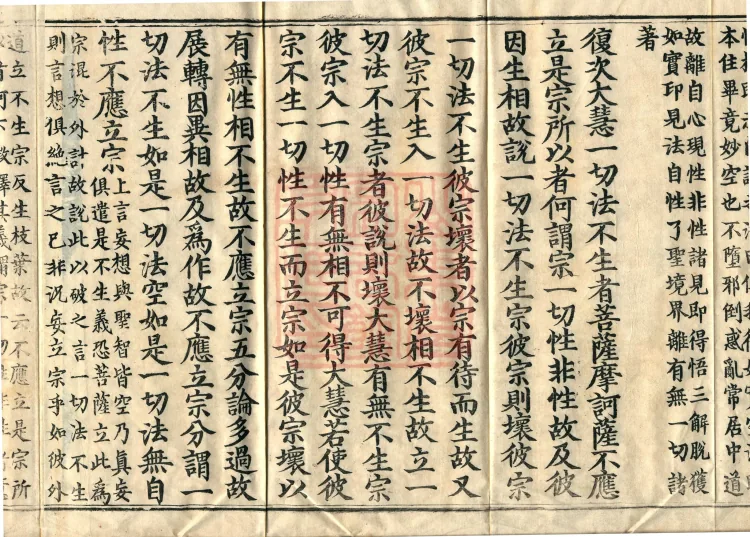 本住畢竟妙空也不墮邪倒惑亂常居中道
故離自心現性非性諸見即得悟三解脫獲
如實印見法自性了聖境界離有無一切諸
著
復次大慧一切法不生者菩薩摩訶薩不應
立是宗所以者何謂宗一切性非性故及彼
因生相故說一切法不生宗彼宗則壞彼宗
一切法不生彼宗壞者以宗有待而生故又
彼宗不生入一切法故不壞相不生故立一
切法不生宗者彼說則壞大慧有無不生宗
彼宗入一切性有無相不可得大慧若使彼
宗不生一切性不生而立宗如是彼宗壞以
有無性相不生故不應立宗五分論多過故
展轉因異相故及爲作故不應立宗分謂一
切法不生如是一切法空如是一切法無自
性不應立宗
上言妄想與聖智皆空乃真妄
俱遣是不生義恐菩薩立此爲
宗混於外計故說此以破之言一切法不生
則言想俱絕言之已非況妄立宗乎如彼外
道立不生宗反生枝葉故云不應立是宗所